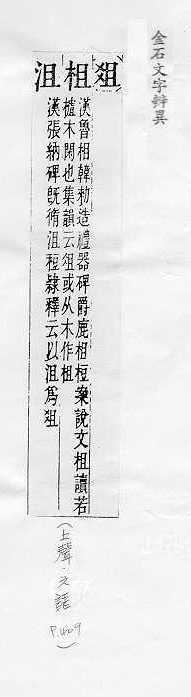 金石文字辨異
俎
柤
漢魯相韓勑造禮器碑爵鹿柤梪案說文柤讀若
樝木閑也集韻云俎或从木作柤
沮
漢張納碑旣脩沮梪隸釋云以沮爲俎
(上聲.六語 P.409)